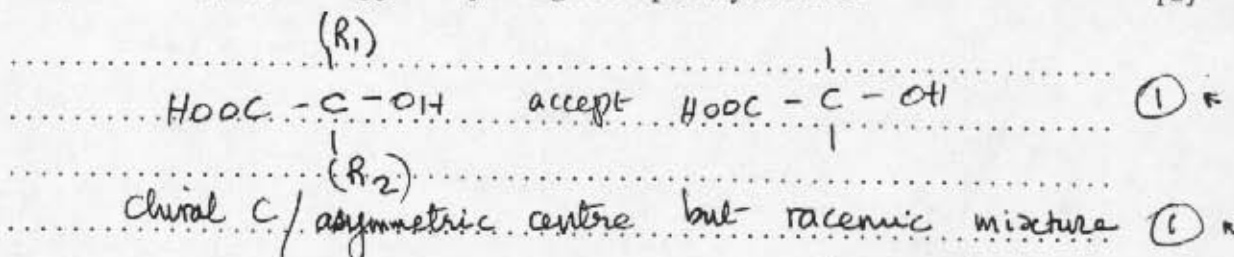 (R₁)
HOOC - C - OH accept HOOC - C - OH ①
(R₂)
Chiral C / asymmetric centre but racemic mixture ①